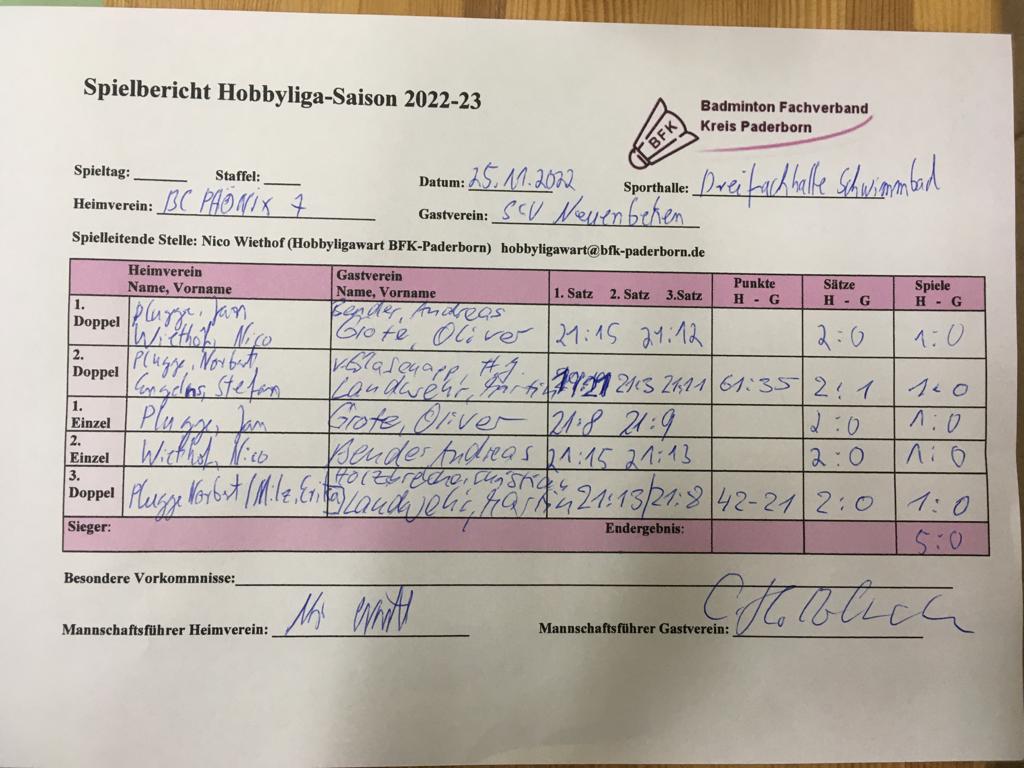 Spielbericht Hobbyliga-Saison 2022-23
BFK
Badminton Fachverband
Kreis Paderborn
Spieltag: Staffel: Datum: 25.11.2022 Sporthalle: Dreifachhalle Schwimmbad
Heimverein: BC PHÖNIX 7 Gastverein: SCV Neuenbeken
Spielleitende Stelle: Nico Wiethof (Hobbyligawart BFK-Paderborn) hobbyligawart@bfk-paderborn.de
Heimverein Gastverein Punkte Sätze Spiele
Name, Vorname Name, Vorname 1. Satz 2. Satz 3.Satz H - G H - G H - G
1. Plugge, Jan Bender, Andreas
Doppel Wiethof, Nico Grote, Oliver 21:15 21:12 2:0 1:0
2. Plugge, Norbert
Doppel Engelns, Stefan Landwehr, 21:11 61:35 2:1 1:0
1. Plugge, Jan Grote, Oliver 21:8 21:9 2:0 1:0
Einzel
2. Wiethof, Nico Bender Andreas 21:15 21:13 2:0 1:0
Einzel
3.
Doppel Plugge Norbert / Milz, Erika Landwehr, Martin 21:13/21:8 42-21 2:0 1:0
Sieger: Endergebnis: 5:0
Besondere Vorkommnisse:
Mannschaftsführer Heimverein: Mannschaftsführer Gastverein: